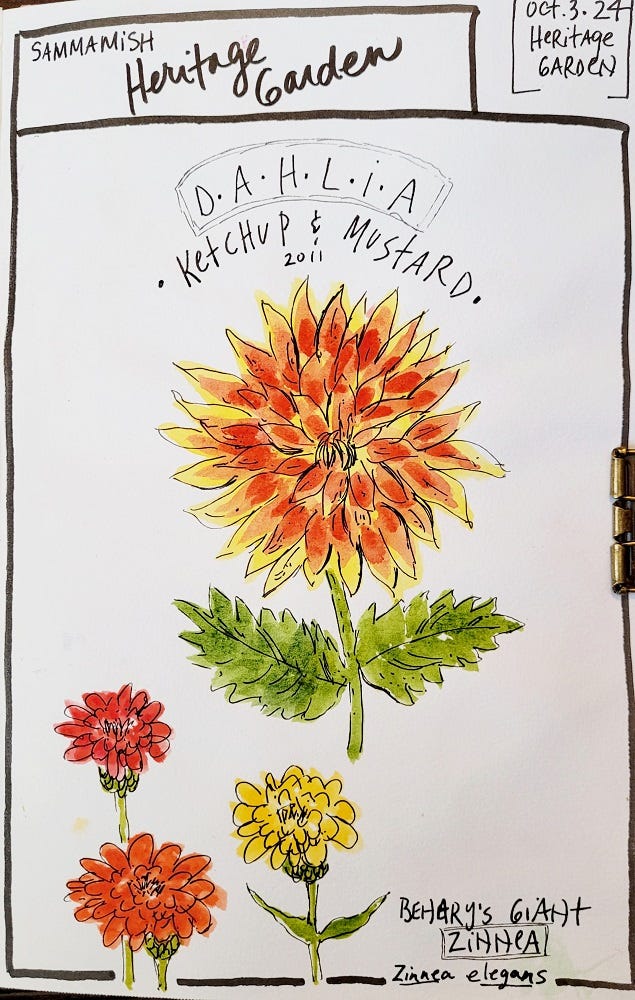 SAMMAMISH
Heritage
Garden
Oct. 3. 24
HERITAGE
GARDEN
D.A.H.L.i.A
. KETCHUP & MUSTARD.
2011
BEHARY'S GIANT
ZiNNEA
Zinnea elegans